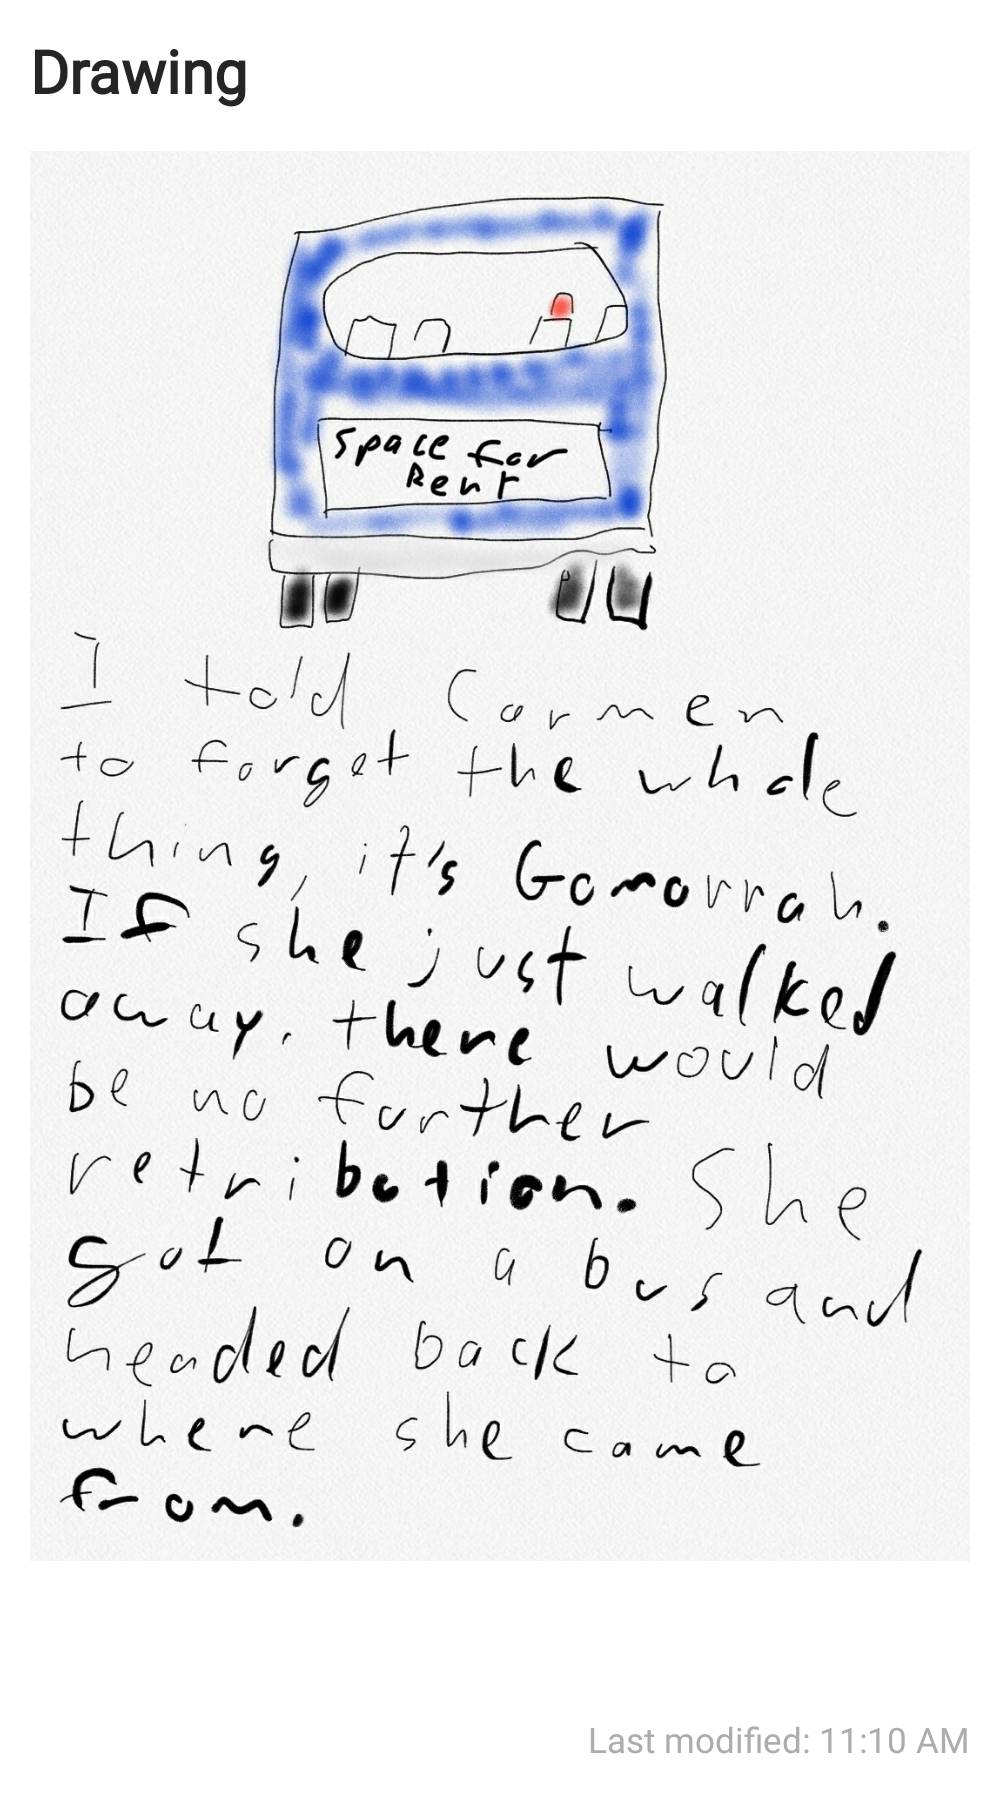 Drawing
Space for
Rent
I told Carmen
to forget the whole
thing, it's Gomorrah.
If she just walked
away, there would
be no further
retribution. She
got on a bus and
headed back to
where she came
from.
Last modified: 11:10 AM